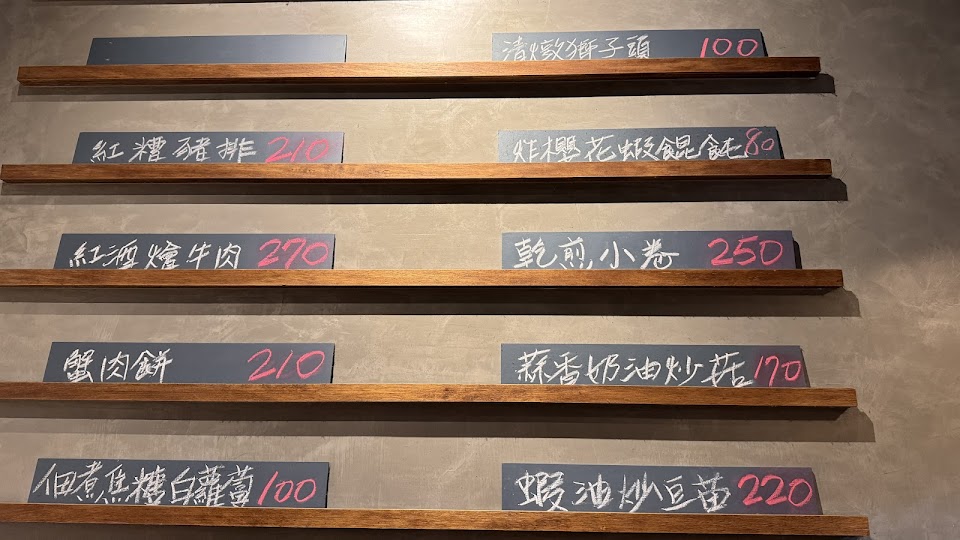 清燉獅子頭 100
紅糟豬排 210
炸櫻花蝦餛飩 80
紅酒燴牛肉 270
乾煎小卷 250
蟹肉餅 210
蒜香奶油炒菇 170
佃煮焦糖白蘿蔔 100
蝦油炒豆苗 220